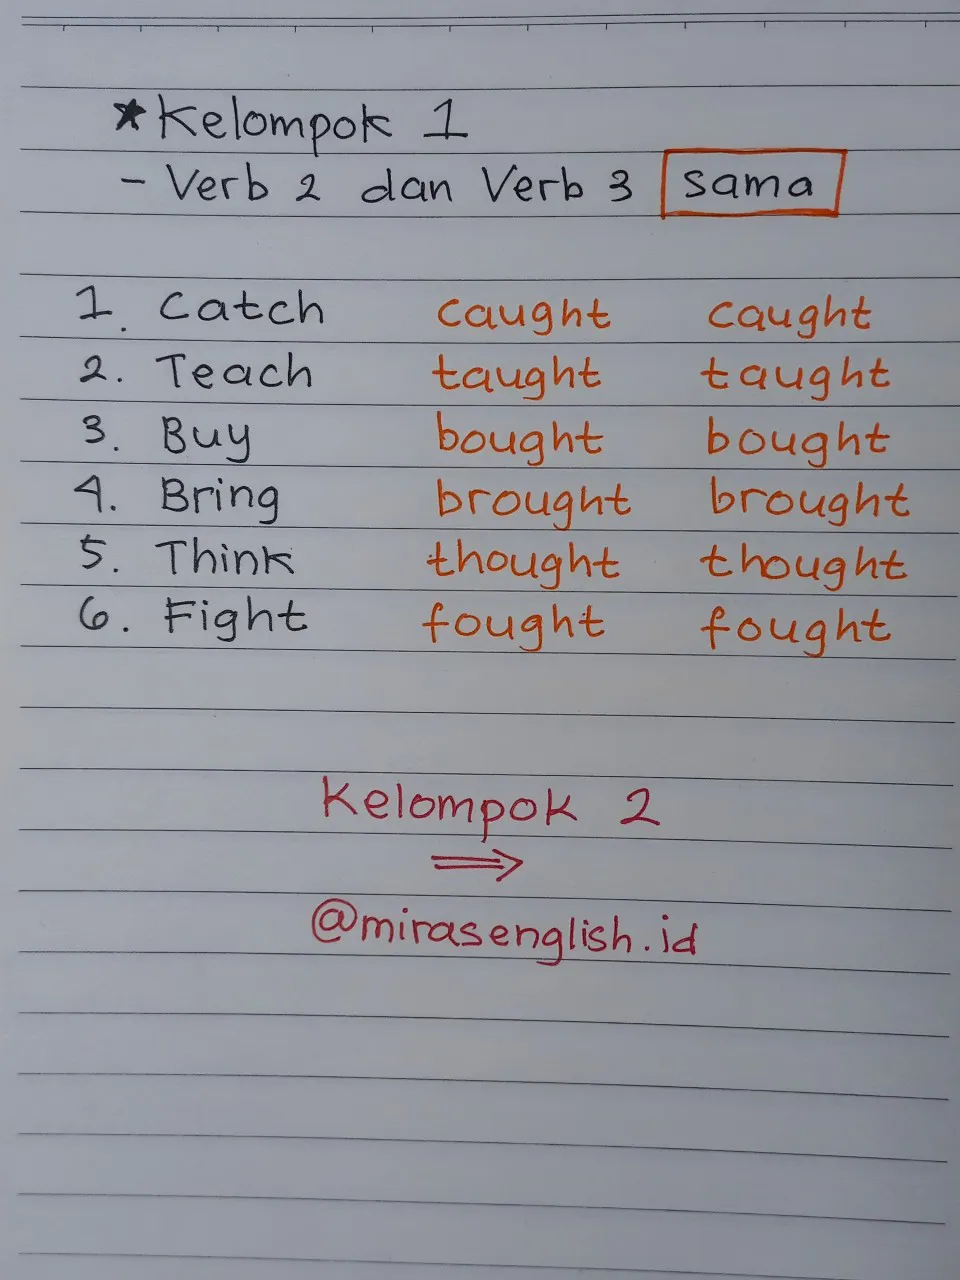 ★ Kelompok 1
- Verb 2 dan Verb 3 sama
1. Catch caught caught
2. Teach taught taught
3. Buy bought bought
4. Bring brought brought
5. Think thought thought
6. Fight fought fought
Kelompok 2
⇒
@mirasenglish.id